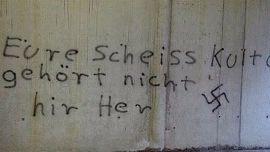 Eure scheiss Kultu
gehört nicht
hir Her